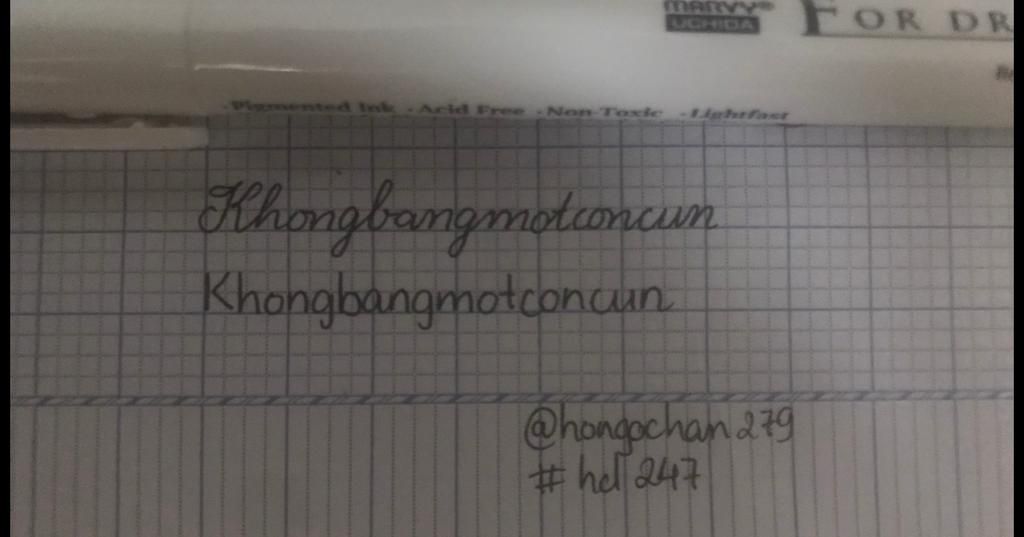 MARVY®
UCHIDA
FOR DR
·Pigmented Ink ·Acid Free ·Non Toxic ·Lightfast
Khongbangmotconcun
Khongbangmotconcun
@hongochan279
#hcl247